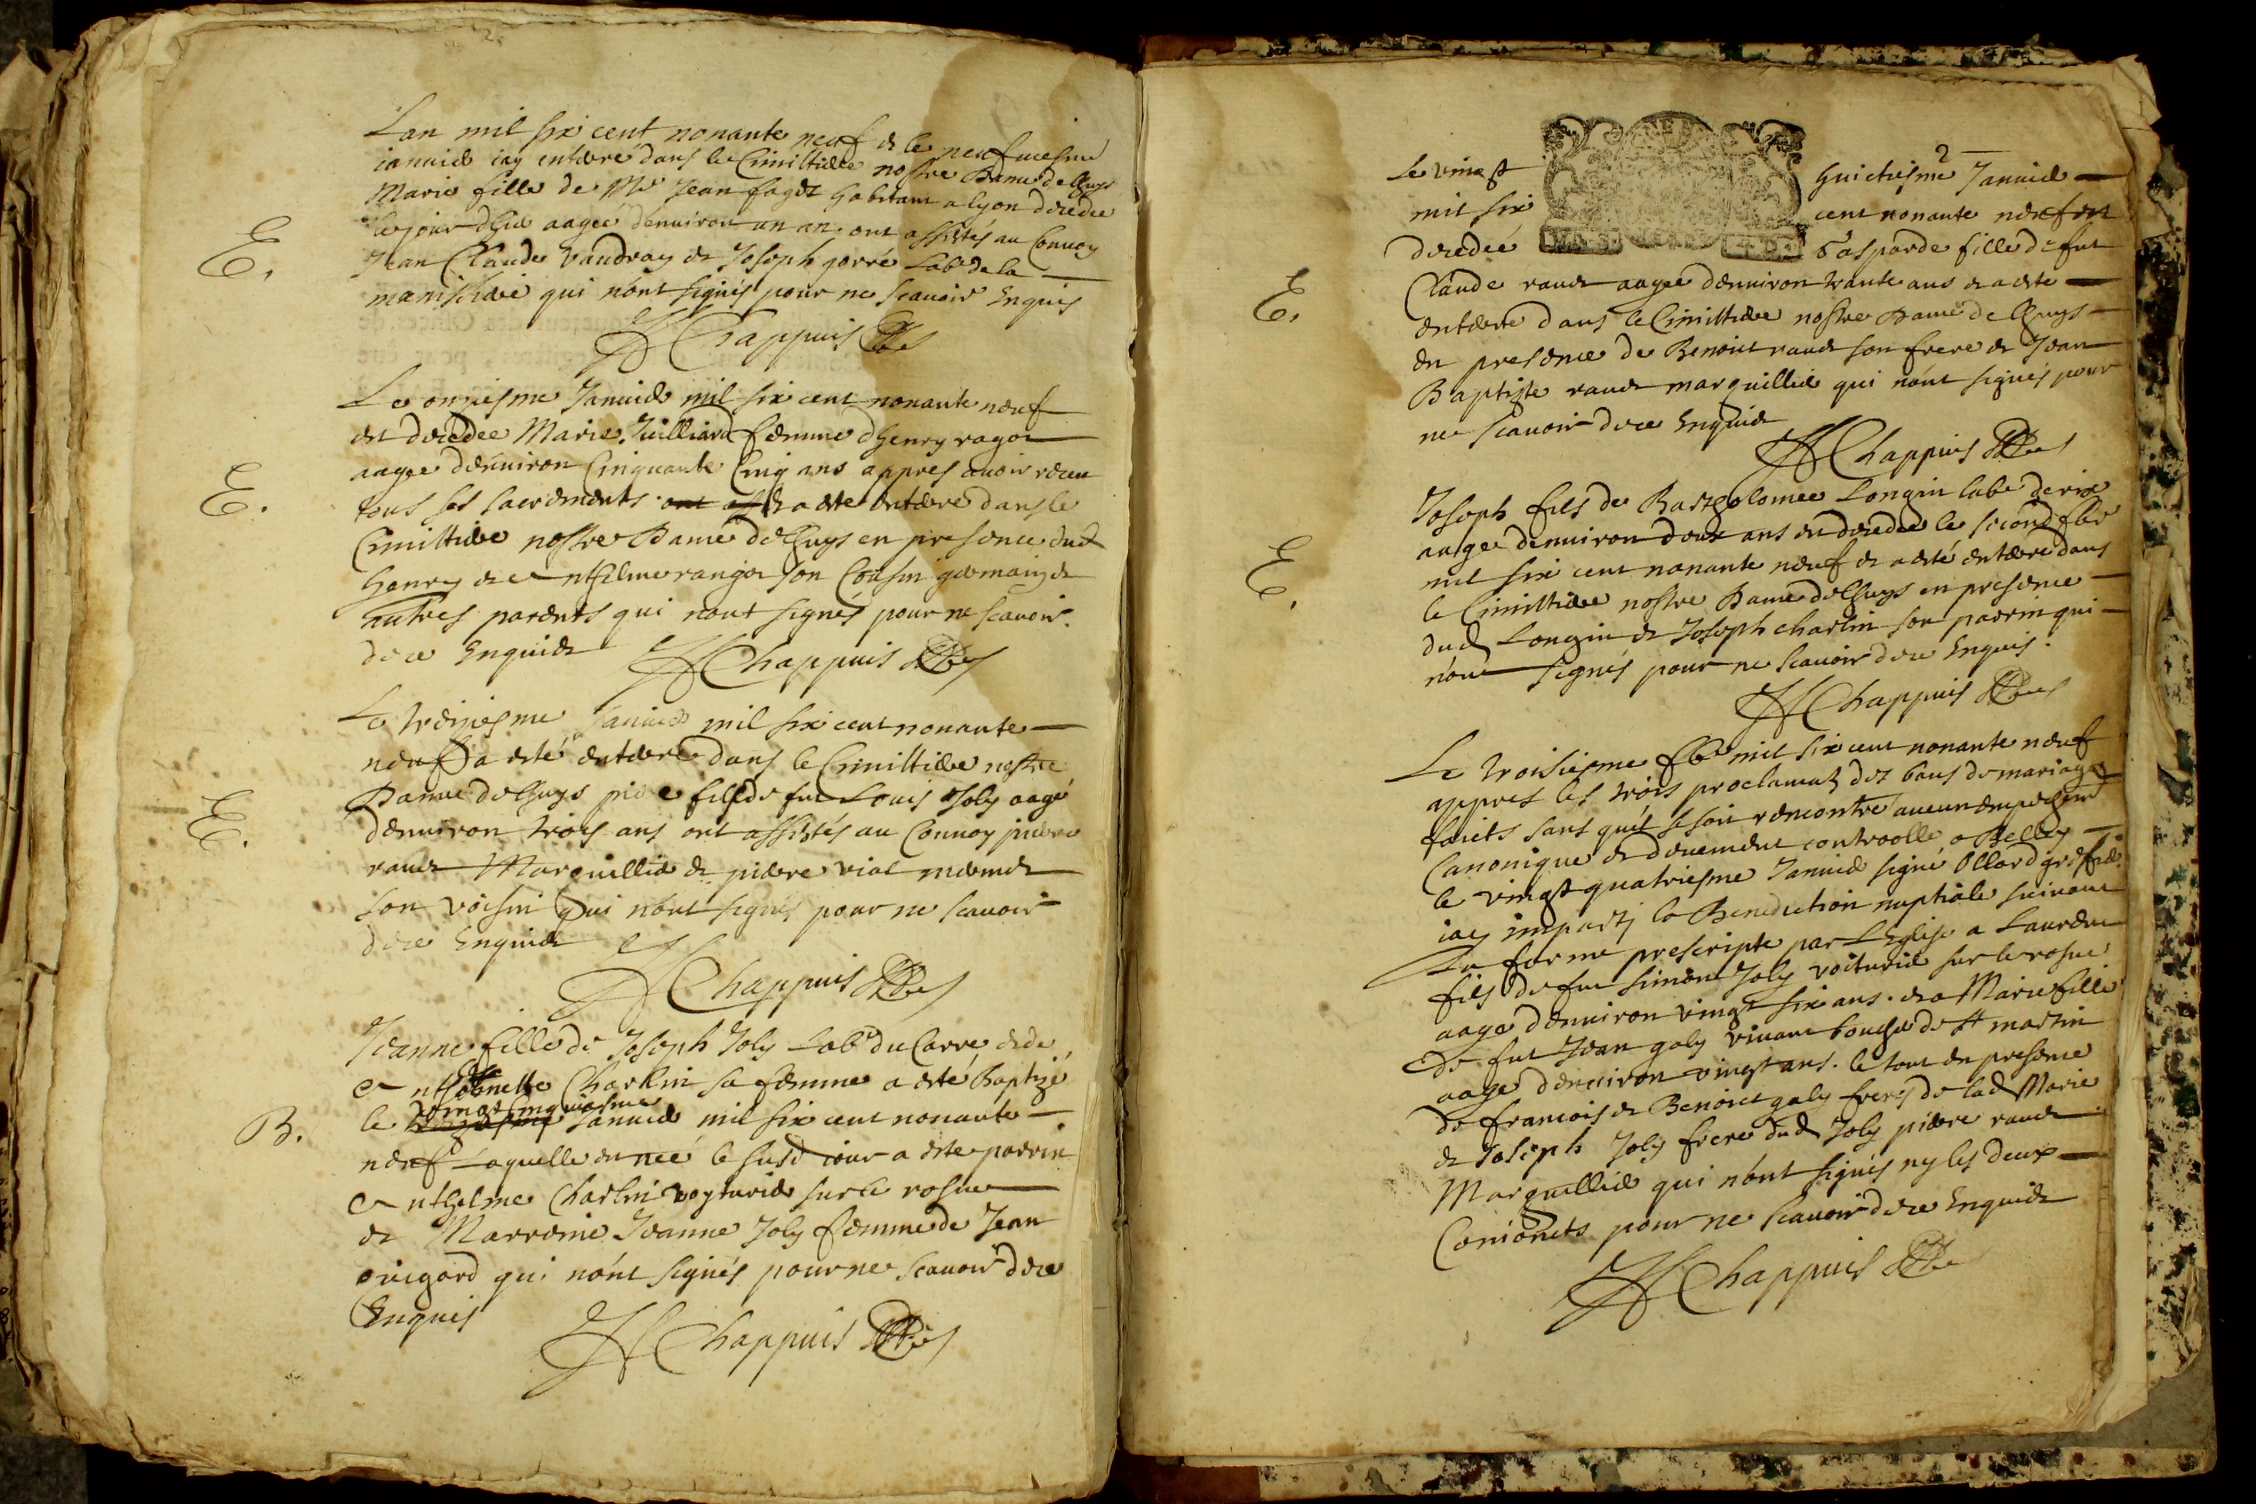 Lan mil six cent nonante neuf et le neufuiesme
januier iay enterré dans le Cimittiere nostre Dame de Lhuys
Marie fille de Mre Jean fager habitant a lyon decedee
le jour dhier aagee denuiron un an ont assistes au Conuoy
Jean Claude Vaudray et Joseph gorré Labr de la
qui nont signés pour ne scauoir Enquis
E.
Chappuis
Le onziesme Januier mil six cent nonante neuf
est decedee Marie Juilliard femme dhenry ragot
aagee denuiron Cinquante Cinq ans appres auoir receu
tous les sacrements et a este enterré dans le
Cimittiere nostre Dame de Lhuys en presence dud
henry et Anthelme son Cousin germain et
autres parents qui nont signés pour ne scauoir
de ce Enquis
E.
Chappuis
Le treiziesme Januier mil six cent nonante
neuf a esté enterré dans le Cimittiere nostre
Dame de Lhuys fils de fut Louis Joly aagé
denuiron trois ans ont assistés au Conuoy pierre
raud Marguillier et pierre vial
son voisin qui nont signés pour ne scauoir
de ce Enquis
E.
Chappuis
Jeanne fille de Joseph Joly Labr du Carre et de
Charlin sa femme a esté Baptizé
le vingt cinquiesme Januier mil six cent nonante
neuf Laquelle est neé le susd iour a este parrin
Anthelme Charlin voyturier sur le rosne
et Marreine Jeanne Joly femme de Jean
qui nont signés pour ne scauoir de ce
Enquis
B.
Chappuis
2
Le vingt huictiesme Januier
mil six cent nonante neuf est
decedeé Gasparde fille de fut
Claude raud aagee denuiron trante ans et a este
enterré dans le Cimittiere nostre Dame de Lhuys
en presence de Benoist raud son frere et Jean
Baptiste raud marguillier qui nont signés pour
ne scauoir de ce Enquis
E.
Chappuis
Joseph fils de Bartholomee Longin labr de rix
aage denuiron deux ans est decede le second fbr
mil six cent nonante neuf et a esté enterré dans
le Cimittiere nostre Dame de Lhuys en presence
dud Longin et Joseph charlin son parrin qui
nont signés pour ne scauoir de ce Enquis.
E.
Chappuis
Le troisiesme fbr mil six cent nonante neuf
appres les trois proclamat des bans de mariage
faicts sans quil se soit rencontré aucun empechemt
Canonique et deuement controolle a Belley
le vingt quatriesme Januier signé Ollard greffier
iay imparti la Benediction nuptiale suiuant
La forme prescripte par LEglise a Laurent
fils de fut Simon Joly voiturier sur le rosne
aage denuiron vingt six ans. et a Marie fille
de fut Jean galy viuant boucher de st martin
aage denuiron vingt ans. le tout en presence
de francois et Benoist galy freres de lad Marie
et Joseph Joly frere dud Joly pierre raud
Marguillier qui nont signés ny les deux
Conioints pour ne scauoir de ce Enquis
Chappuis